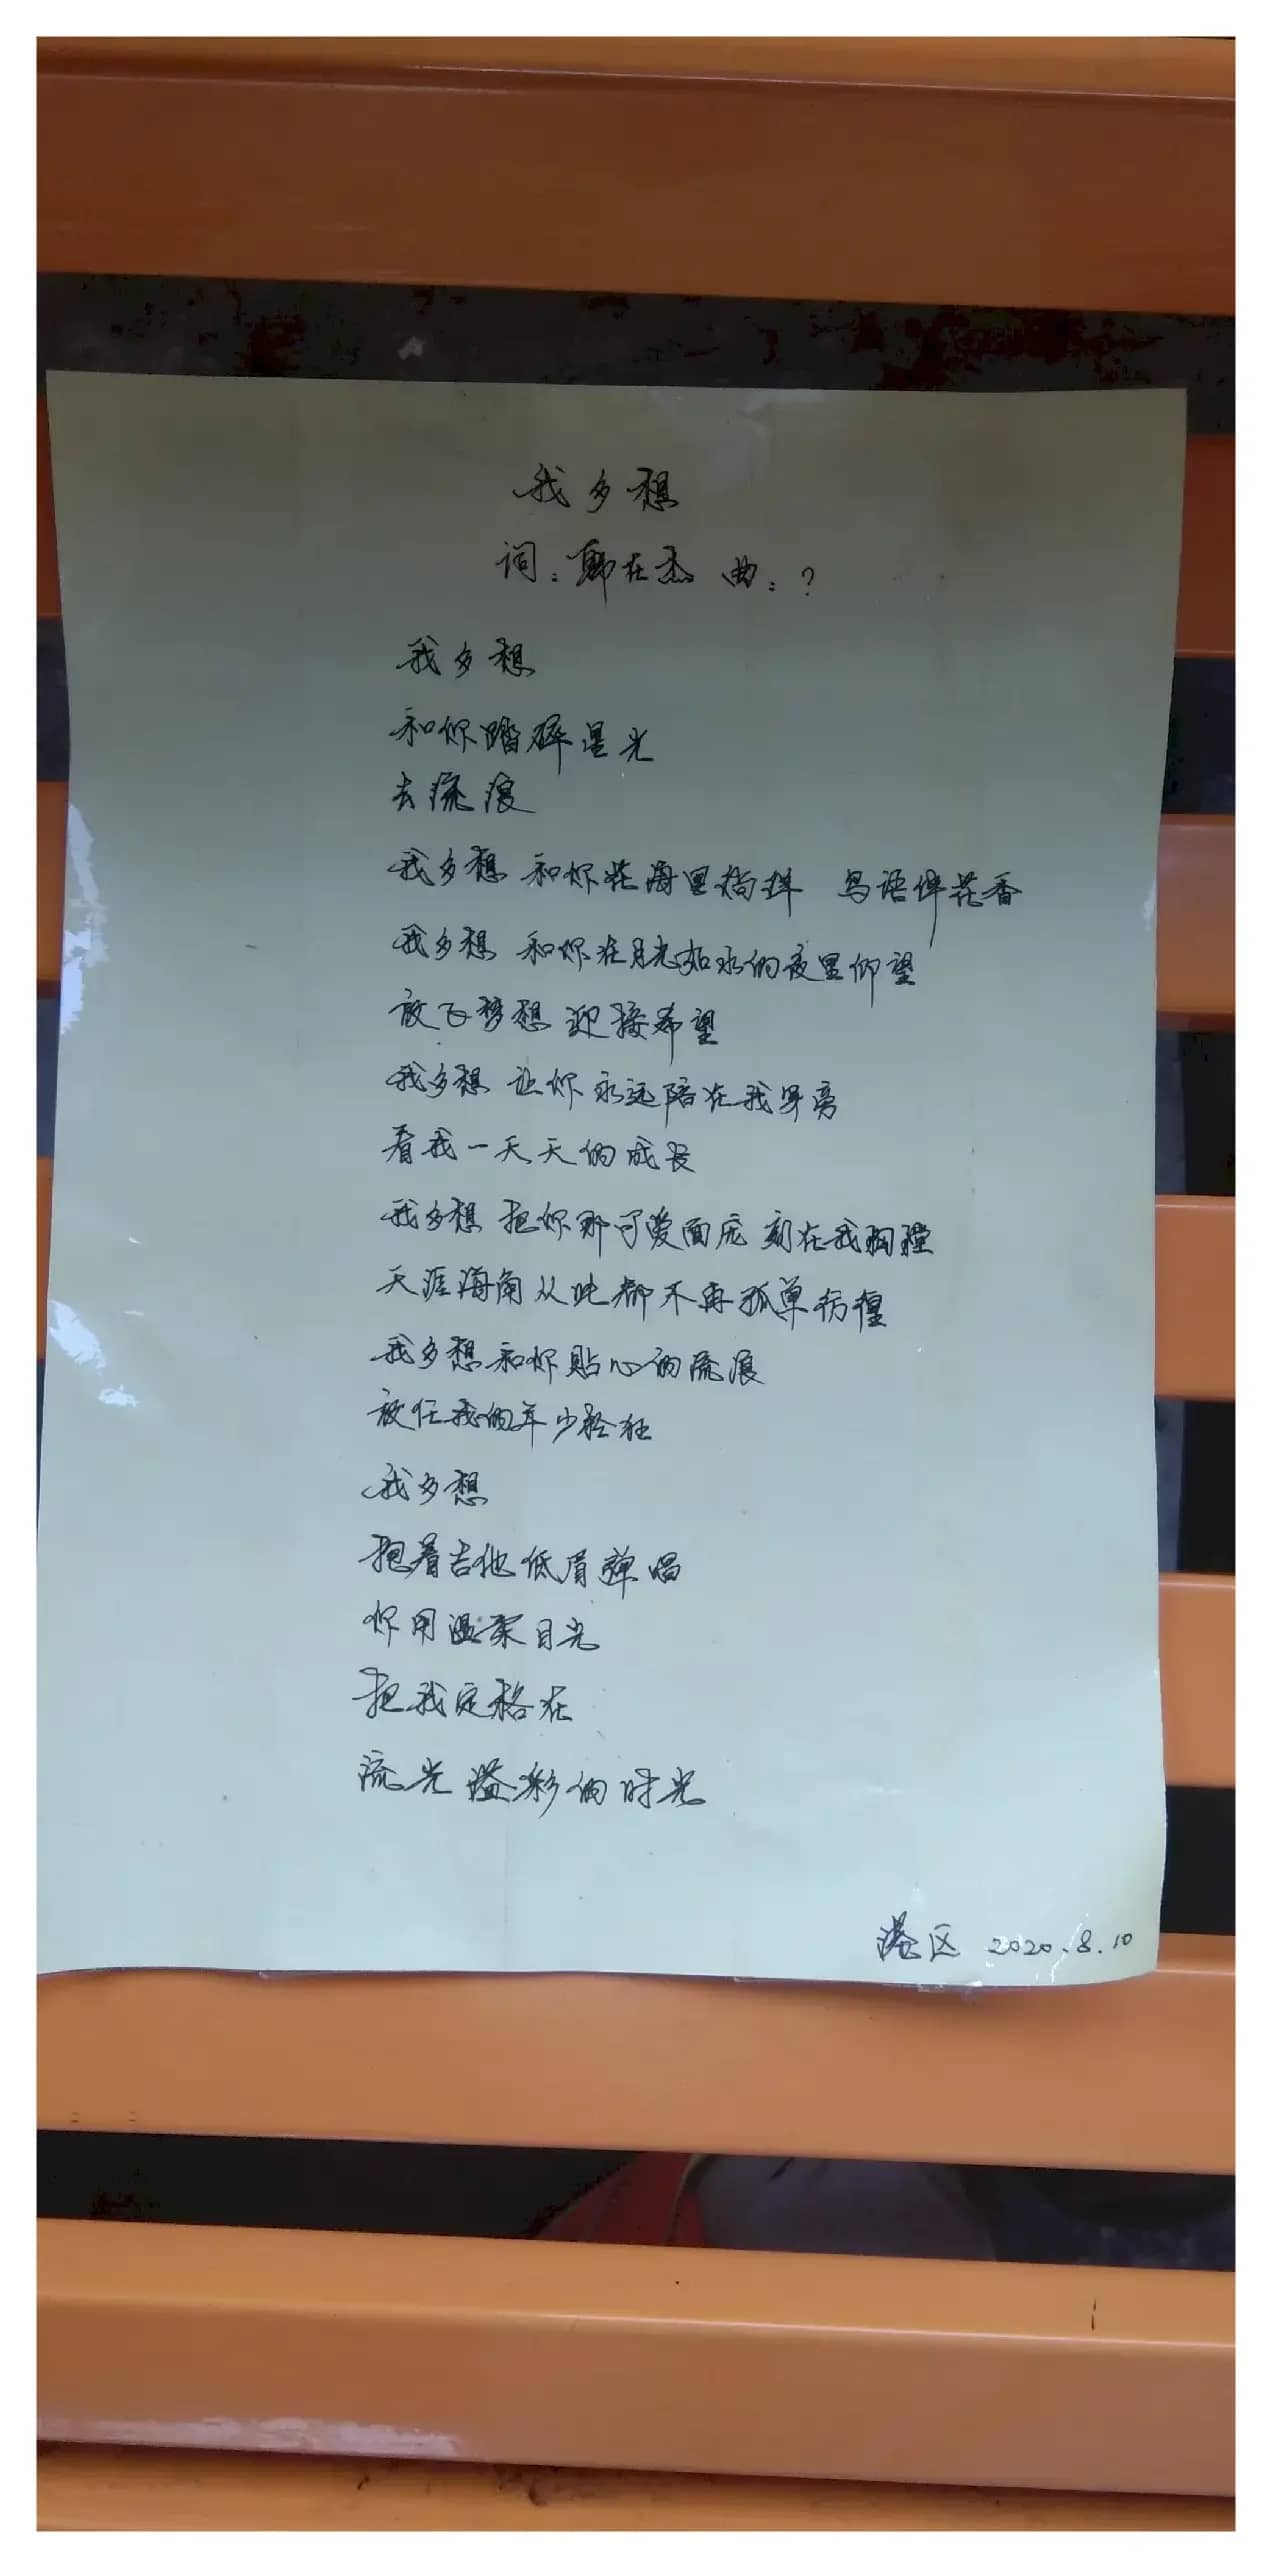 我多想
词：郭在杰 曲：？
我多想
和你踏碎星光
去流浪
我多想 和你花海里徜徉 鸟语伴花香
我多想 和你在月光如水的夜里仰望
放飞梦想 迎接希望
我多想 让你永远陪在我身旁
看我一天天的成长
我多想 把你那可爱面庞 刻在我胸膛
天涯海角从此都不再孤单彷徨
我多想和你贴心的流浪
放任我的年少轻狂
我多想
抱着吉他低眉弹唱
你用温柔目光
把我定格在
流光溢彩的时光
港区 2020.8.10